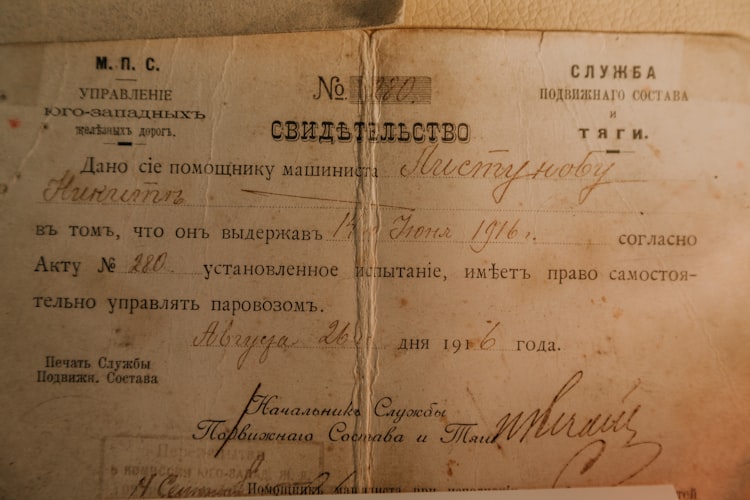 М. П. С.
УПРАВЛЕНІЕ
ЮГО-ЗАПАДНЫХЪ
желѣзныхъ дорогъ.
№ 280.
СЛУЖБА
ПОДВИЖНАГО СОСТАВА
И
ТЯГИ.
СВИДѢТЕЛЬСТВО
Дано сіе помощнику машиниста Пистунову
Никитѣ
въ томъ, что онъ выдержавъ Іюня 1916 г. согласно
Акту № 280. установленное испытаніе, имѣетъ право самостоя-
тельно управлять паровозомъ.
Августа 26 дня 1916 года.
Печать Службы
Подвижн. Состава
Начальникъ Службы
Подвижнаго Состава и Тяги